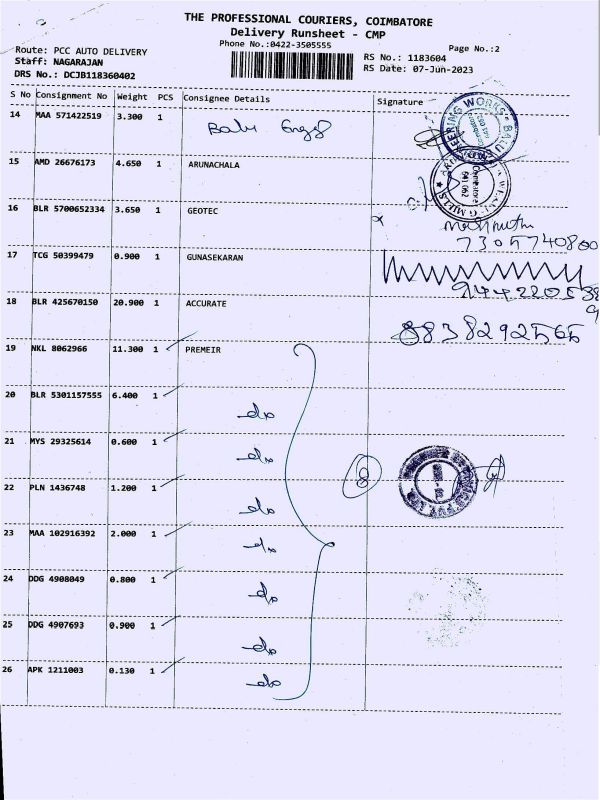 THE PROFESSIONAL COURIERS, COIMBATORE
Delivery Runsheet - CMP
Phone No.:0422-3505555
Page No.:2
Route: PCC AUTO DELIVERY
Staff: NAGARAJAN
DRS No.: DCJB118360402
RS No.: 1183604
RS Date: 07-Jun-2023
S No Consignment No Weight PCS Consignee Details Signature
14 MAA 571422519 3.300 1 Balu Engg
15 AMD 26676173 4.650 1 ARUNACHALA
16 BLR 5700652334 3.650 1 GEOTEC
7305740800
17 TCG 50399479 0.900 1 GUNASEKARAN
18 BLR 425670150 20.900 1 ACCURATE
8838292565
19 NKL 8062966 11.300 1 PREMEIR
20 BLR 5301157555 6.400 1 do
21 MYS 29325614 0.600 1 do
22 PLN 1436748 1.200 1 do
8
23 MAA 102916392 2.000 1 do
24 DDG 4908049 0.800 1 do
25 DDG 4907693 0.900 1 do
26 APK 1211003 0.130 1 do